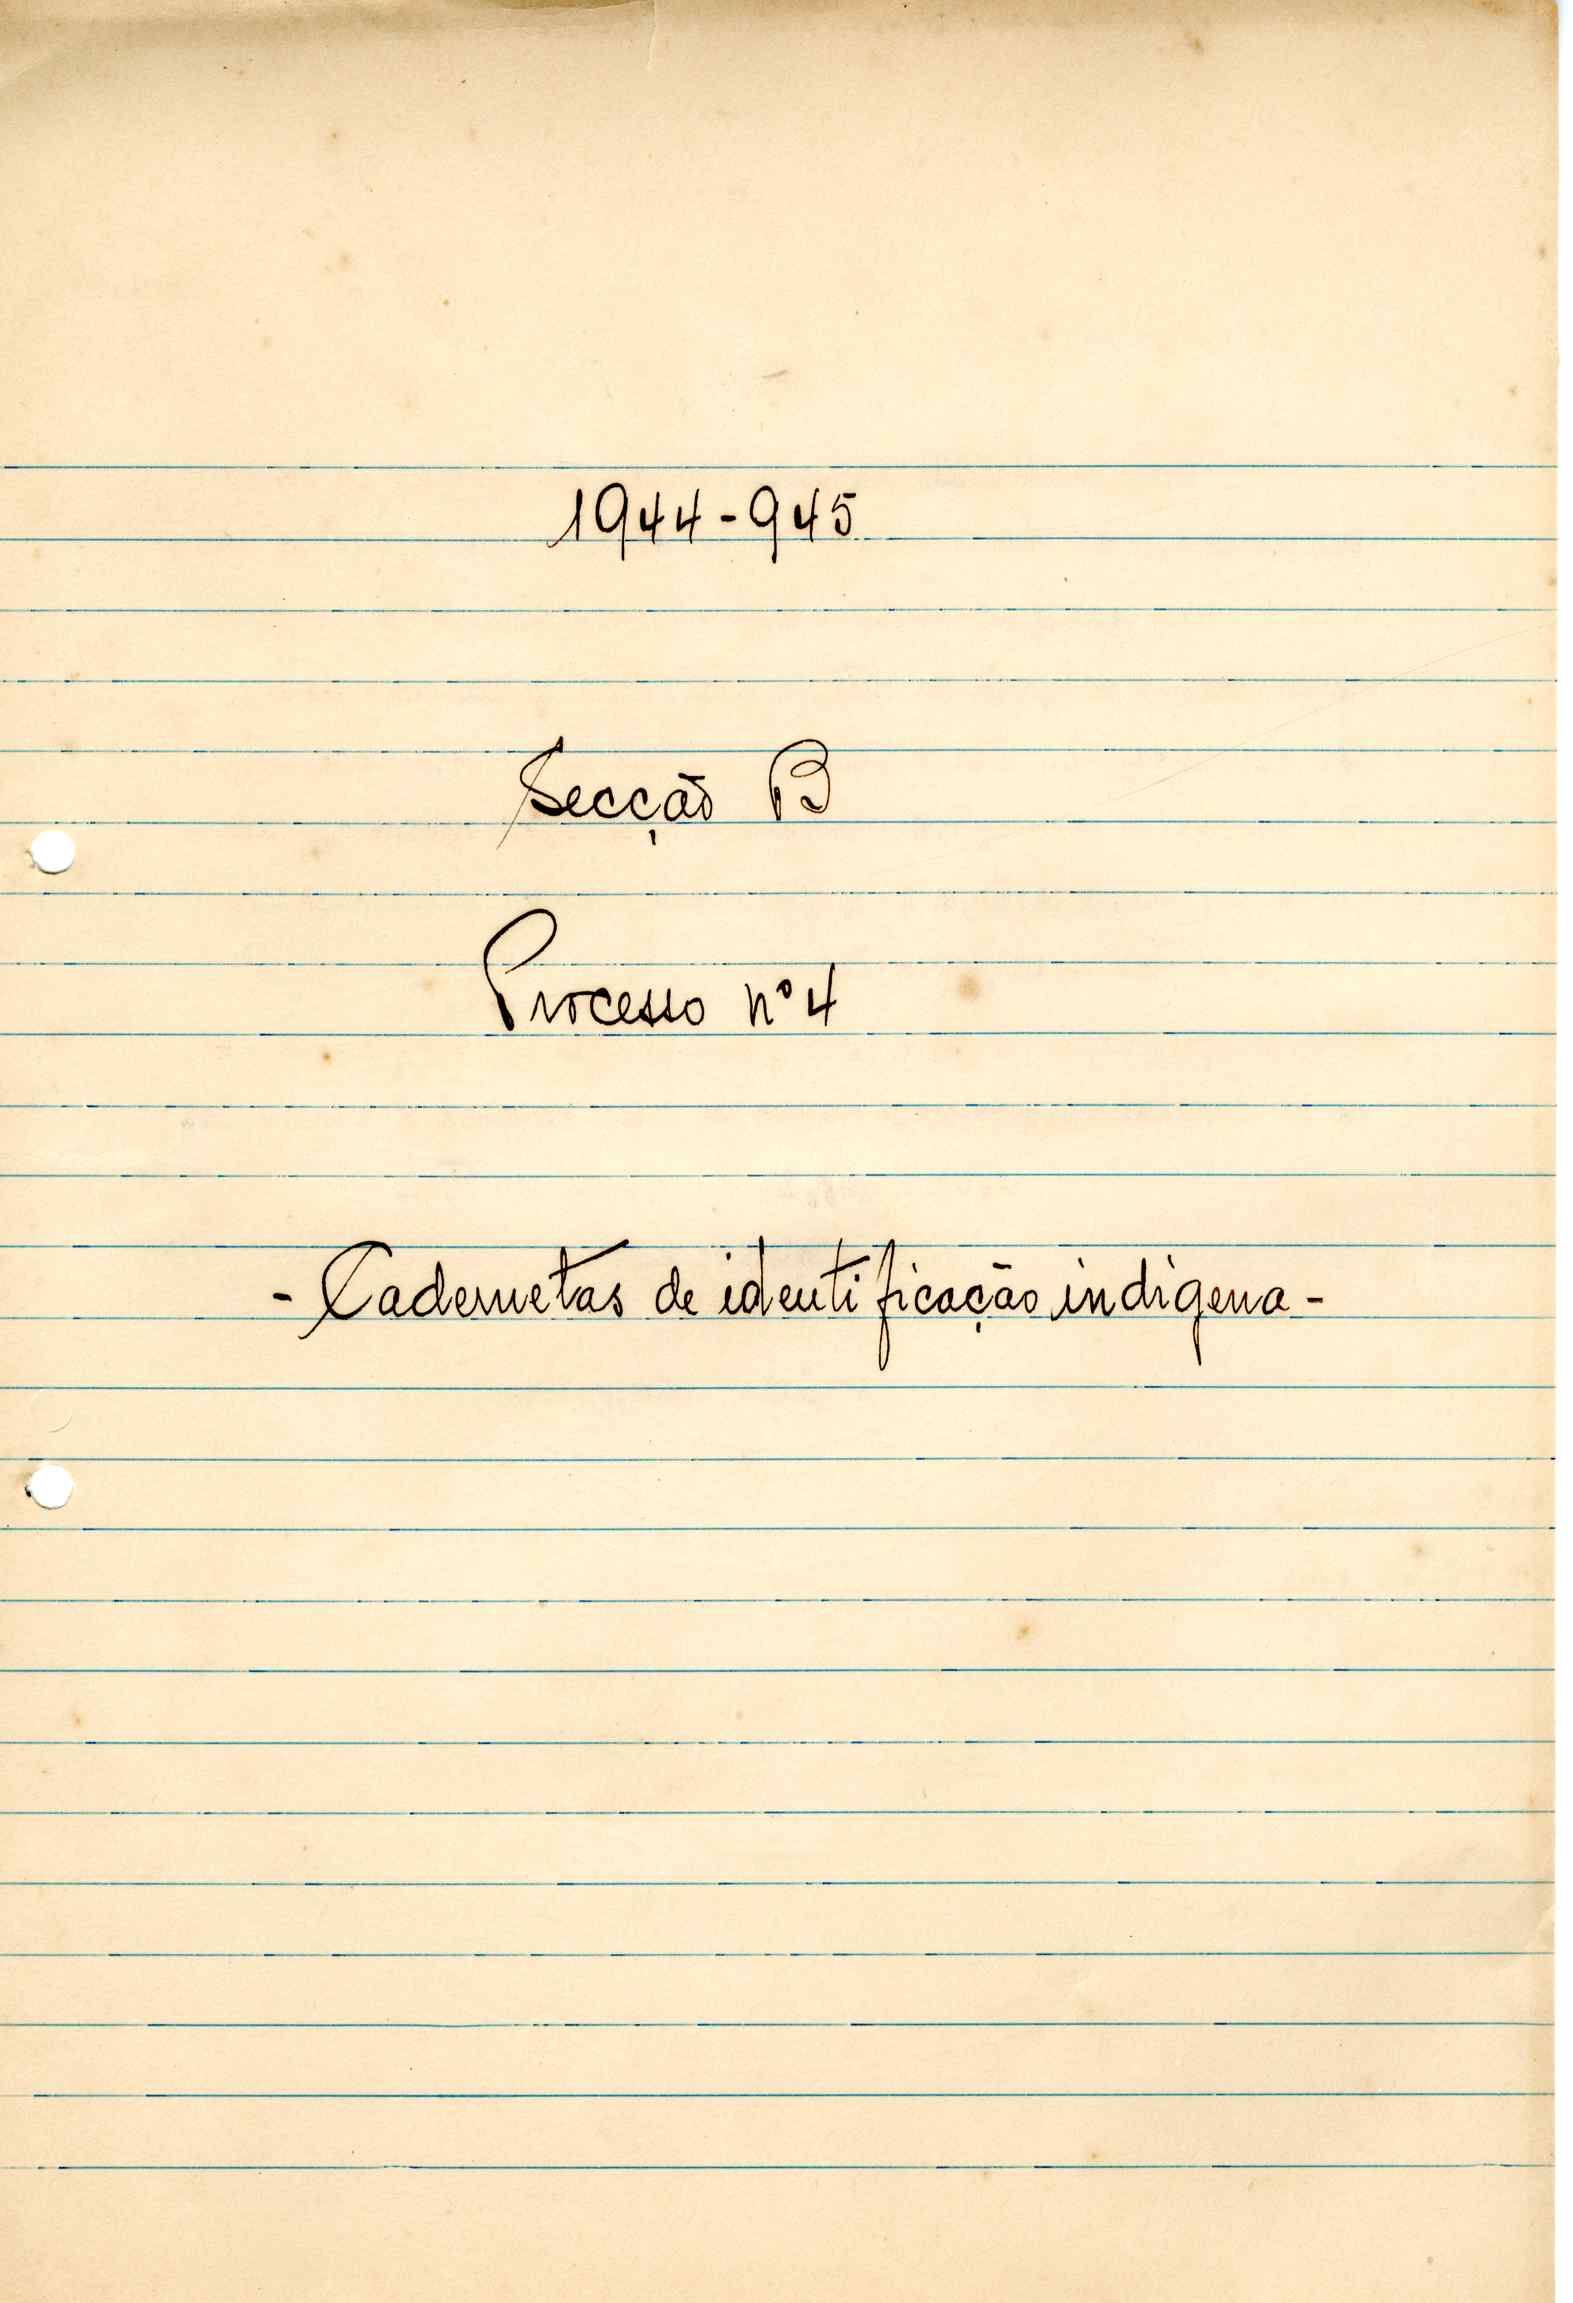 1944-945
Secção B
Processo nº 4
- Cadernetas de identificação indigena -